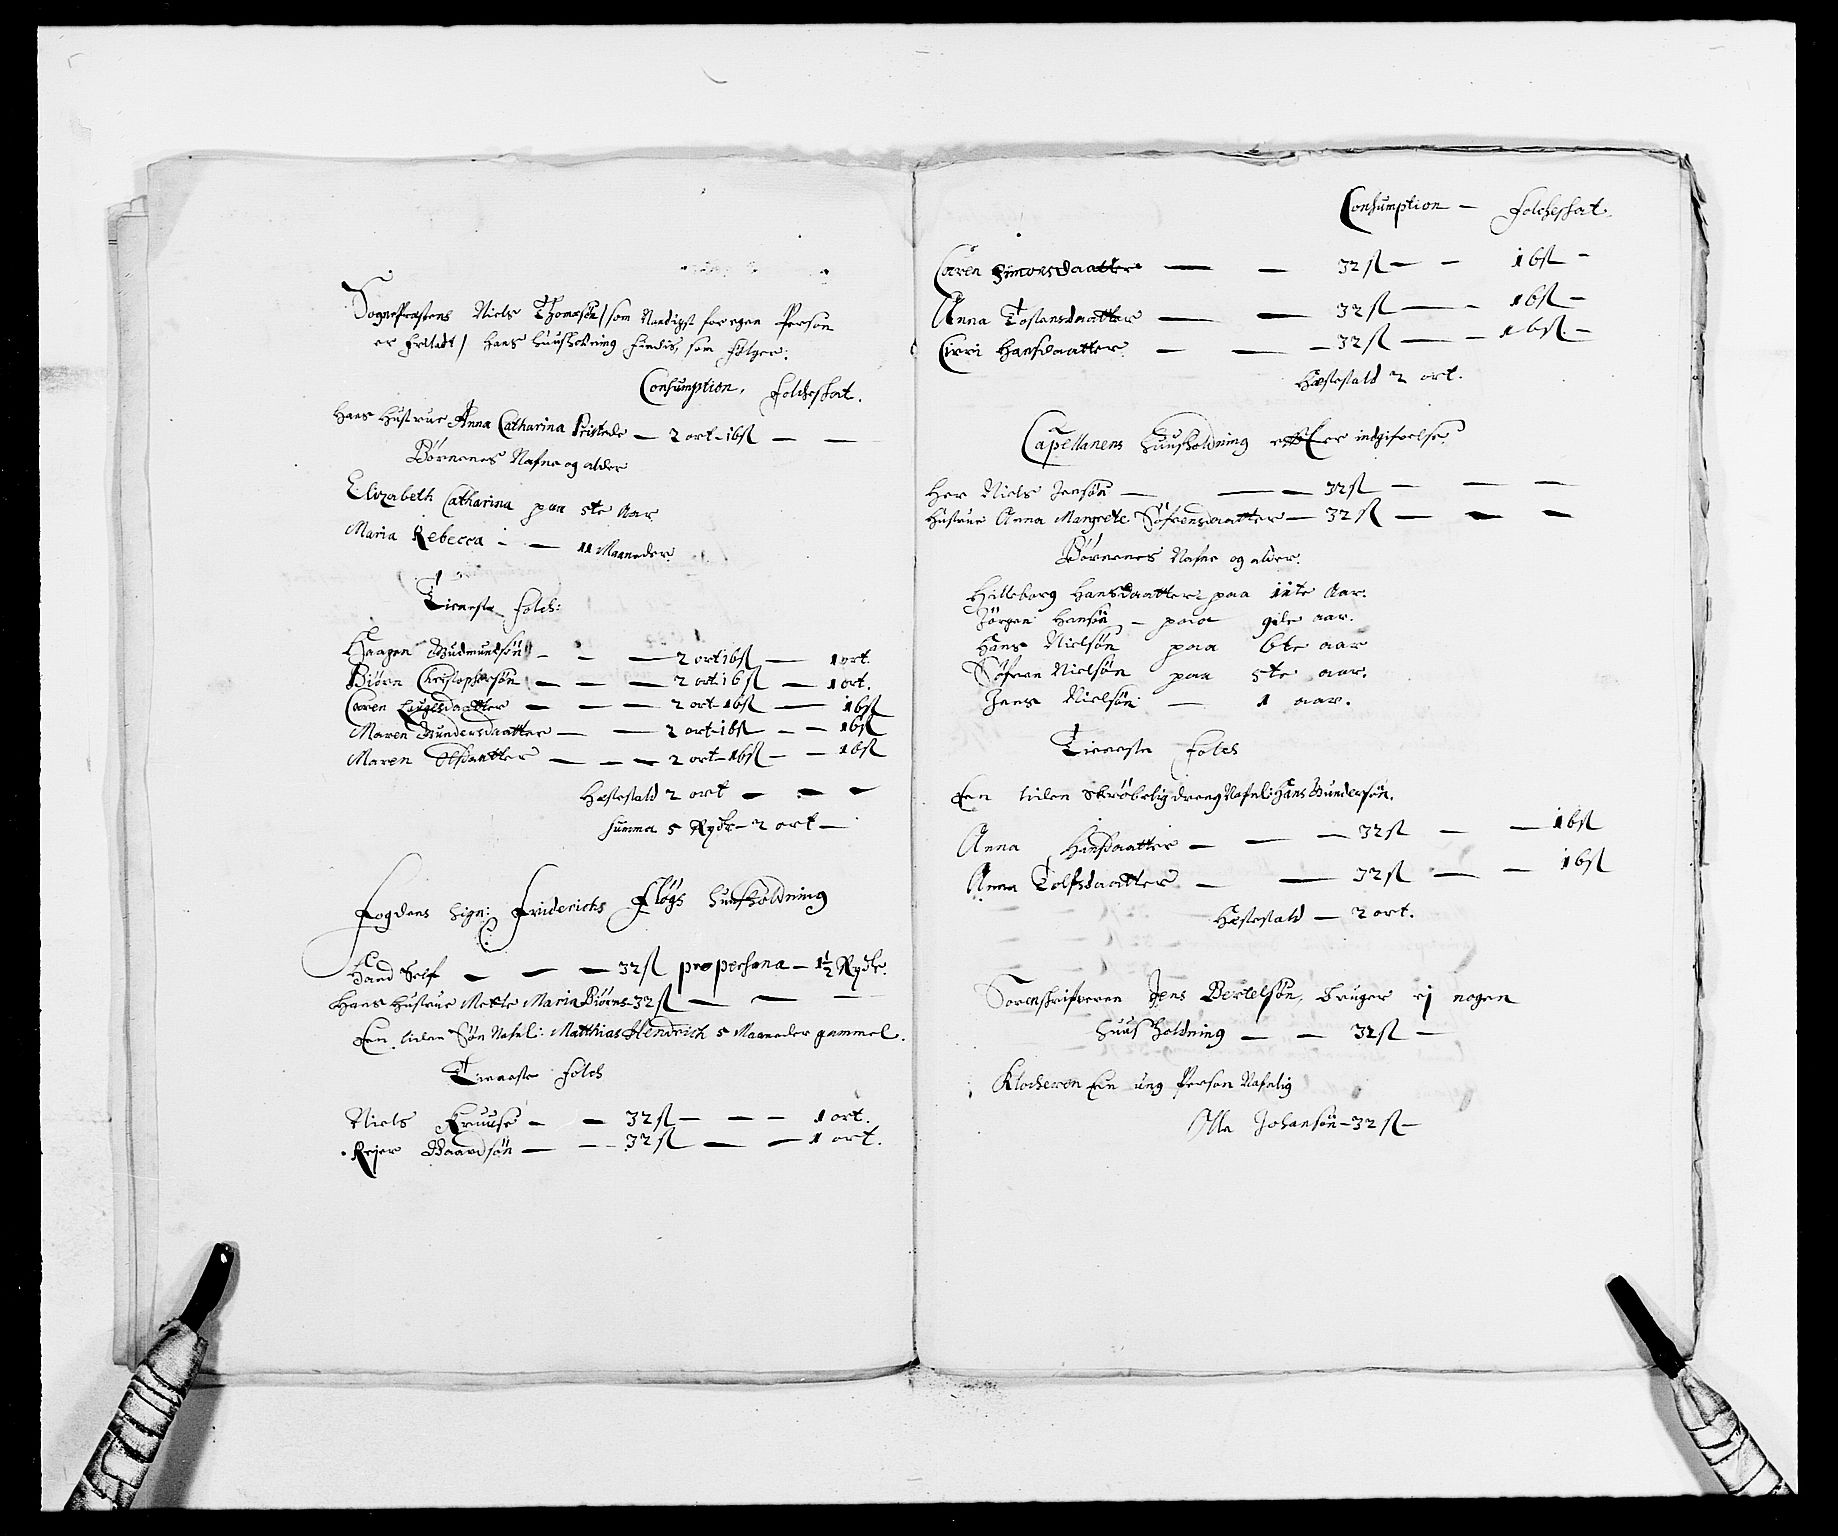 SognePræstens Niels Thomesøn / som Naadigst for egen Person
er forladt / Hans Huusholdning findis, som følger.
Consumption, Folcheskat.
Hans Hustrue Anna Catharina Pristede — 2 ort - 16ß — —
Børnenes Nafne og alder
Elizabeth Catharina paa 5te Aar
Maria Rebecca - — 11 Maaneder
Tieneste Folch:
Haagen Gudmundsøn - - — 2 ort 16ß — 1 ort.
Biørn Christophersøn — — — 2 ort 16ß — 1 ort.
Caren — — — 2 ort - 16ß — 16ß
Maren Gundersdaatter — — 2 ort - 16ß - - 16ß
Maren Olsdaatter — — — 2 ort - 16ß — - 16ß
Hæstestald 2 ort — — —
Summa 5 Rydr - 2 ort —
Fogdens Sign: Friderichs Fløgs Huusholdning
Hand Self — — — 32ß pro persona — 1½ Rydr.
Hans Hustrue Mette Maria Biørns - 32ß — — —
Een liden Søn Nafnl: Matthias Hendrich 5 Maaneder gammel.
Tieneste Folch
Niels Kruuse — — 32ß — — — 1 ort.
Rejer Baardsøn — — 32ß — — 1 ort.
Consumption — Folcheskat.
Caren Simonsdaatter — — 32ß — - 16ß -
Anna Tostensdaatter — — 32ß — - 16ß -
Cirri Hansdaatter — — — 32ß — - 16ß. -
Hæstestald 2 ort.
Capellanens Huusholdning efter indgifvelse
Her Niels Jensøn — — — 32ß — — —
Hustrue Anna Margrete Søfrensdaatter — 32ß — — —
Børnenes Nafne og alder.
Hilleborg Hansdaatter paa 11te Aar.
Jørgen Hansøn — paa 9de aar.
Hans Nielsøn paa 6te aar
Søfren Nielsøn paa 5te aar.
Jens Nielsøn — 1 aar.
Tieneste Folch
Een liden skrøbelig dreng Nafnl: Hans Gundersøn.
Anna Hansdaatter — — — 32ß — — 16ß
Anna Tolfsdaatter — — 32ß — — 16ß
Hæstestald — 2 ort.
Sorenskrifveren Jens Bertelsøn, bruger ej nogen
Huusholdning — — 32ß —
Klocheren Een ung Person Nafnlig
Olle Johansøn - 32ß -